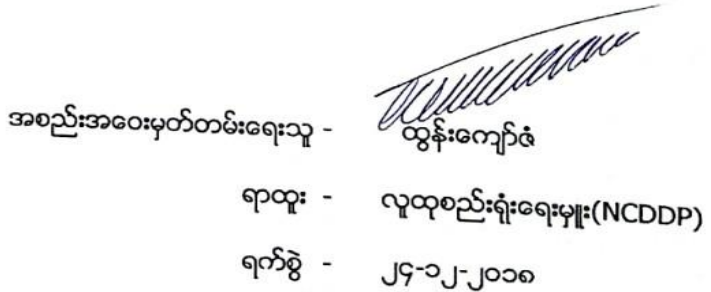 အစည်းအဝေးမှတ်တမ်းရေးသူ - ထွန်းကျော်ဇံ
ရာထူး - လူထုစည်းရုံးရေးမှူး(NCDDP)
ရက်စွဲ - ၂၄-၁၂-၂၀၁၈